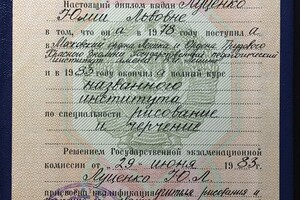 Настоящий диплом выдан Луценко
Юлии Львовне
в том, что он а в 1978 году поступил а
в Московский ордена Ленина и ордена Трудового
Красного Знамени государственный педагогический
институт имени В.И. Ленина
и в 1983 году окончил а полный курс
названного
института
по специальности рисование
и черчение
Решением Государственной экзаменационной
комиссии от „29“ июня 1983 г.
Луценко Ю.Л.
присвоена квалификация учителя рисования и